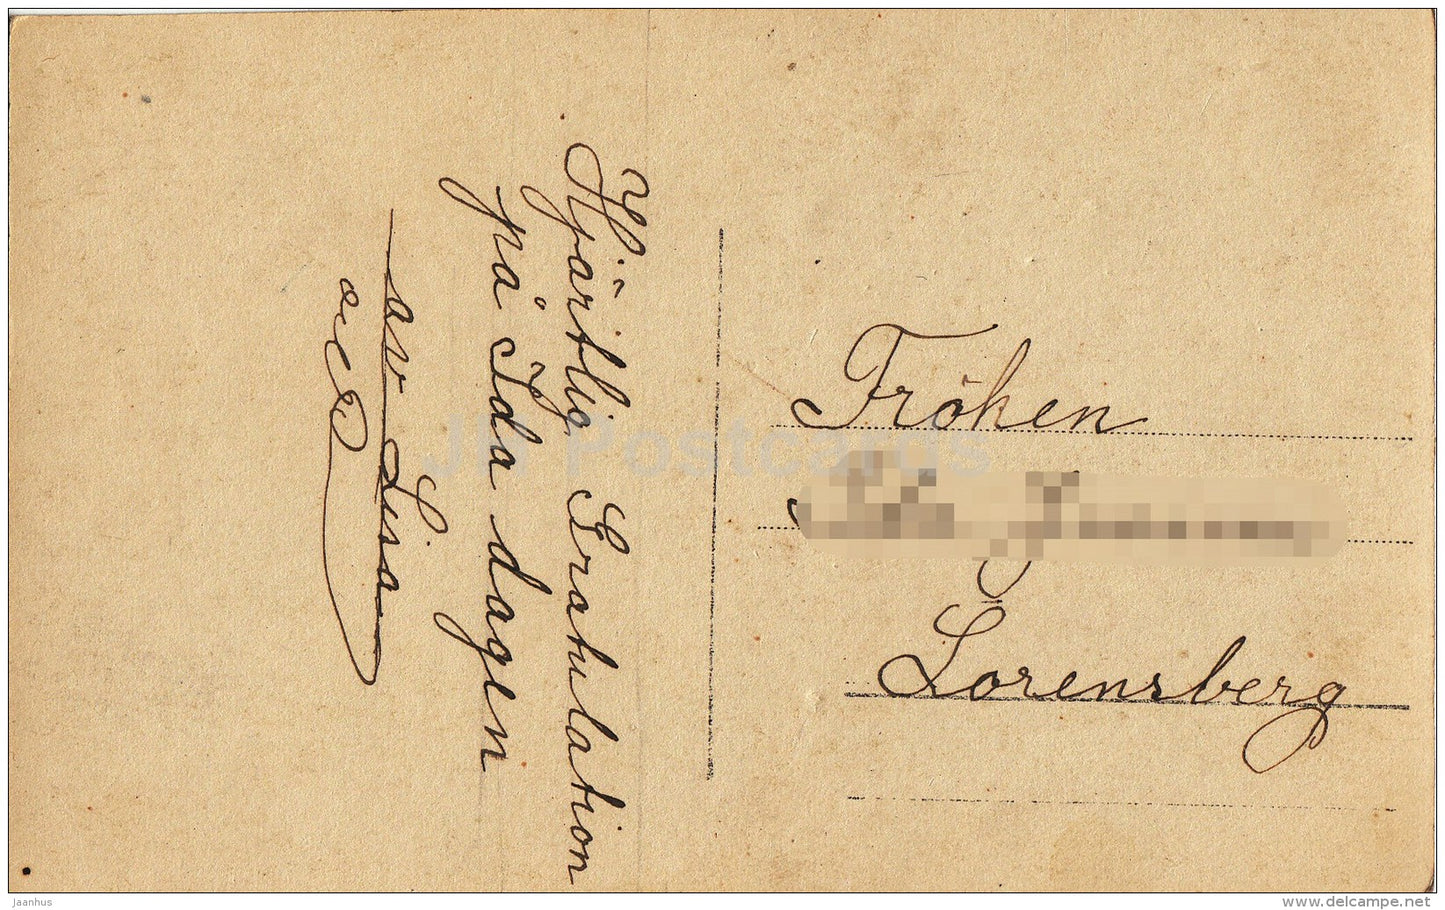 Hjärtlig Gratulation
på Ida dagen
av Lisa
Fröken
Lorensberg
JH Postcards
Jaanhus
www.delcampe.net